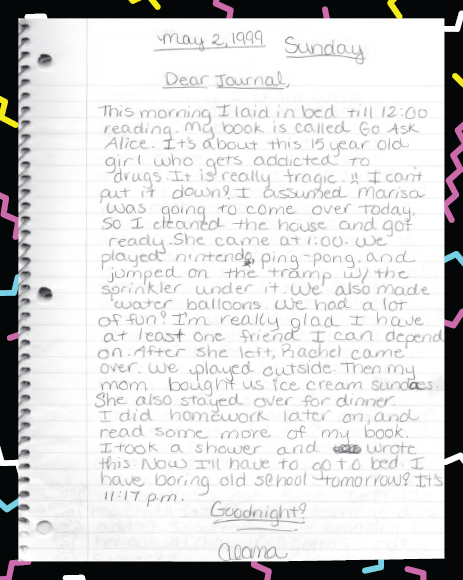 May 2, 1999 Sunday
Dear Journal,
This morning I laid in bed till 12:00
reading. My book is called Go Ask
Alice. It's about this 15 year old
girl who gets addicted to
drugs. It is really tragic!! I can't
put it down! I assumed Marisa
was going to come over today.
So I cleaned the house and got
ready. She came at 1:00. We
played nintendo, ping-pong, and
jumped on the tramp w/ the
sprinkler under it. We also made
water balloons. We had a lot
of fun! I'm really glad I have
at least one friend I can depend
on. After she left, Rachel came
over. We played outside. Then my
mom bought us ice cream sundaes.
She also stayed over for dinner.
I did homework later on, and
read some more of my book.
I took a shower and wrote
this. Now I'll have to go to bed. I
have boring old school tomorrow! It's
11:17 p.m.
Goodnight!